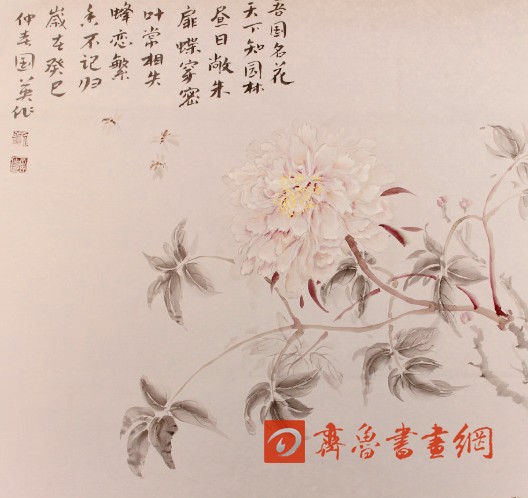 吾国名花
天下知园林
昼日敞朱
扉蝶家密
叶常相失
蜂恋繁
香不记归
岁在癸巳
仲春国英作
齊魯書畫網